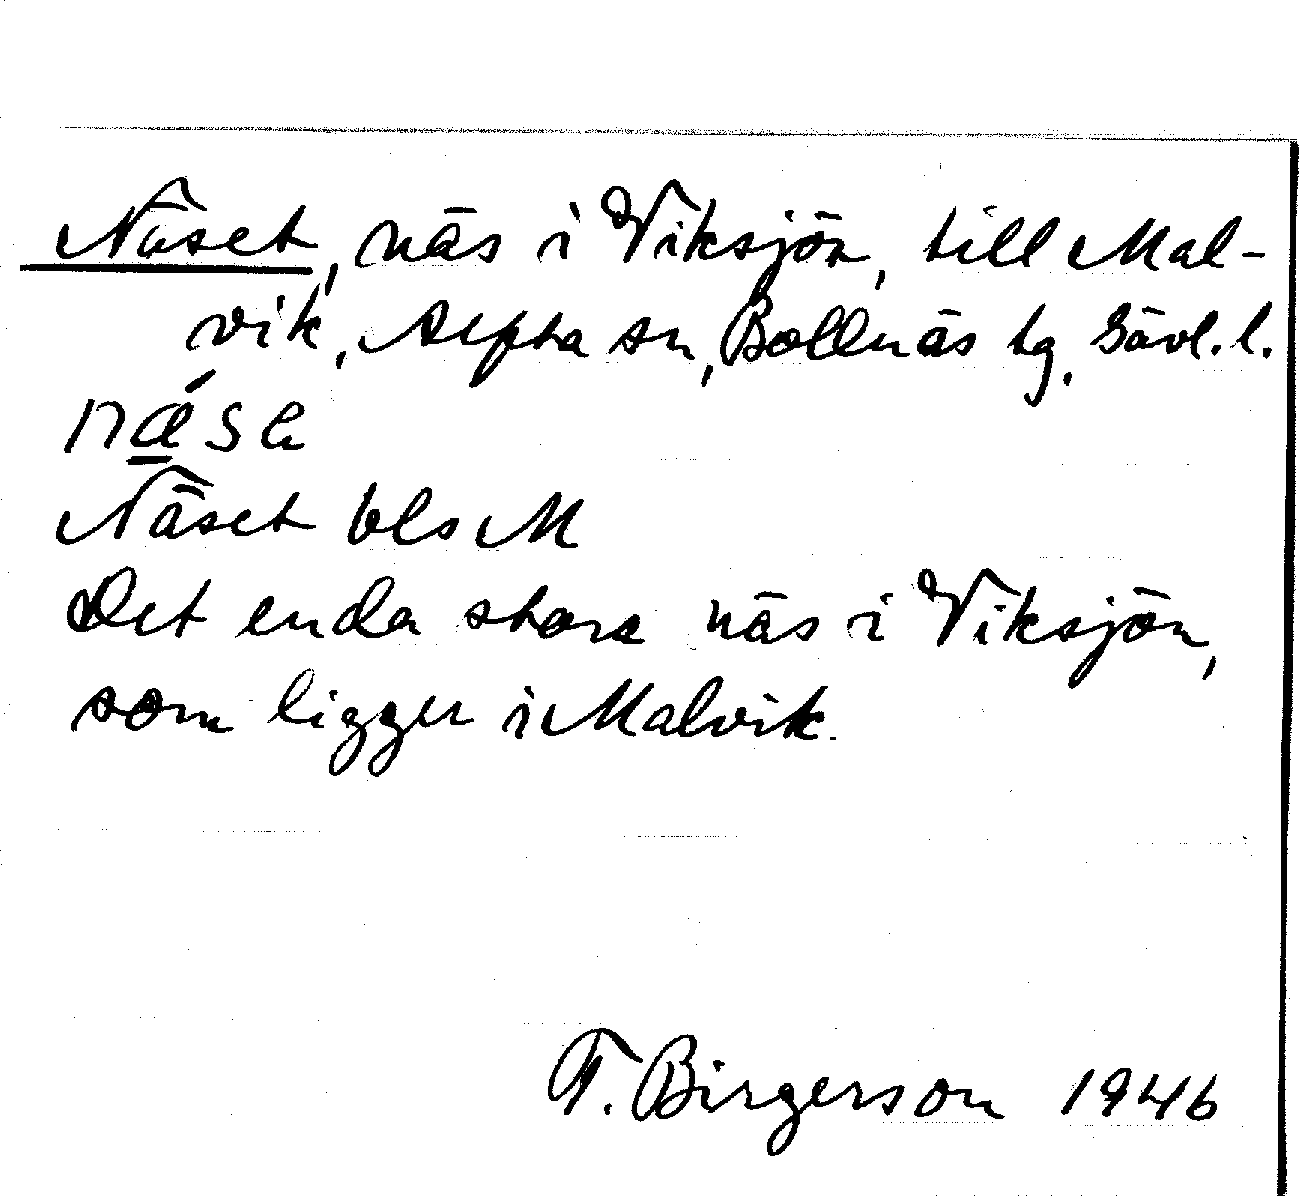 Näset, näs i Viksjön, till Mal-
vik, Alfta sn, Bollnäs tg. Gävl. l.
Näset bls M
Det enda stora näs i Viksjön,
som ligger i Malvik.
T. Birgerson 1946